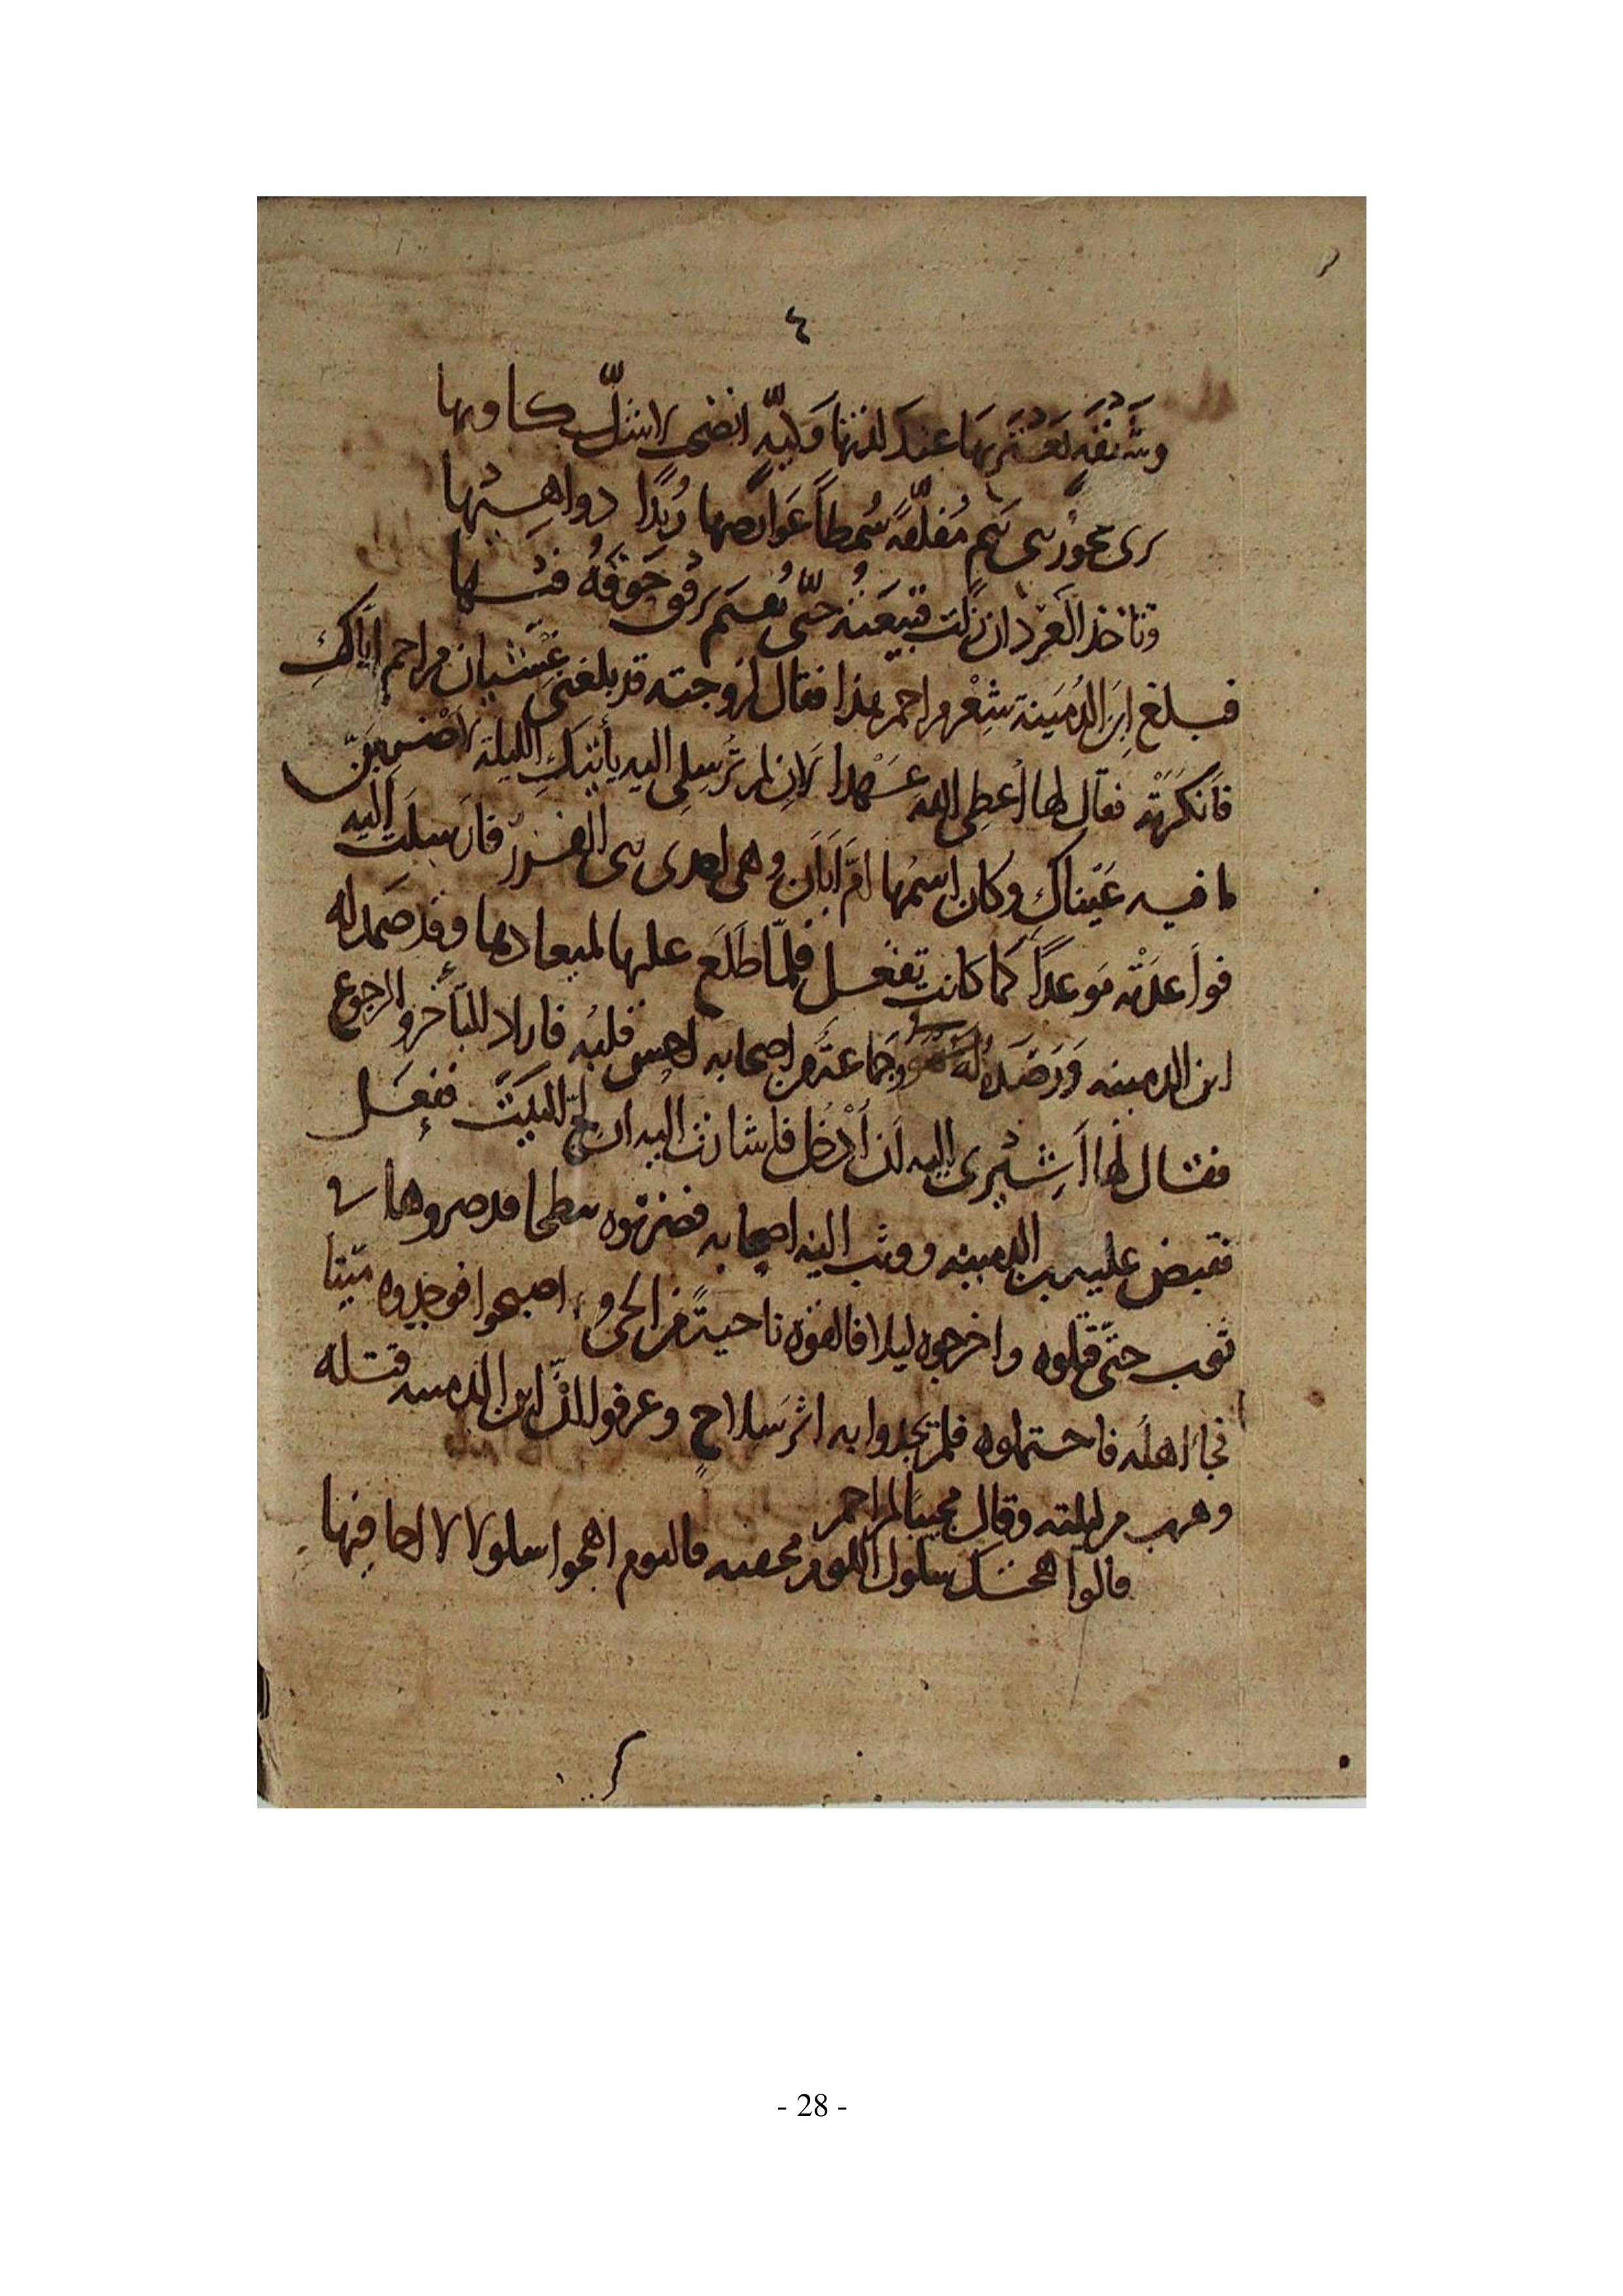 ٤
وشهقة عند لذتها انضى لا شل كاويها
ترى عجوز بني تيم شمطا عوارضها ربدا دواهيها
وتاخذ العرد ان نزلت حتى يقيم برفق
فبلغ ابن الدمينة شعر مزاحم هذا فقال لزوجته قد بلغني غشيان مزاحم اياك
فانكرته فقال لها اعطى الله عهدا لان لم ترسلي اليه يأتيك الليلة لاضربن
ما فيه عيناك وكان اسمها ام ابان وهي احدى بني فارسلت اليه
فواعدته موعدا كما كانت تفعل فلما طلع عليها لميعادها وقد صمد له
ابن الدمينه ورصد له هو وجماعة من اصحابه احس قلبه فاراد للتأخر والرجوع
فقال لها اشيري اليه لن ادخل فاشارت اليه ان لج البيت ففعل
فقبض عليه بن الدمينه ووثب اليه اصحابه فضربوه بطحا قد صروها في
ثوب حتى قتلوه واخرجوه ليلا فالقوه ناحية من الحي و اصبحوا فوجدوه ميتا
فجاء اهله فاحتملوه فلم يجدوا به اثر سلاح وعرفوا ان ابن الدمينه قتله
وهرب من ليلته وقال مجيبا لمزاحم
قالوا هجتك سلول اللوم مخفيه فاليوم اهجوا سلولا لا اخافيها
- 28 -